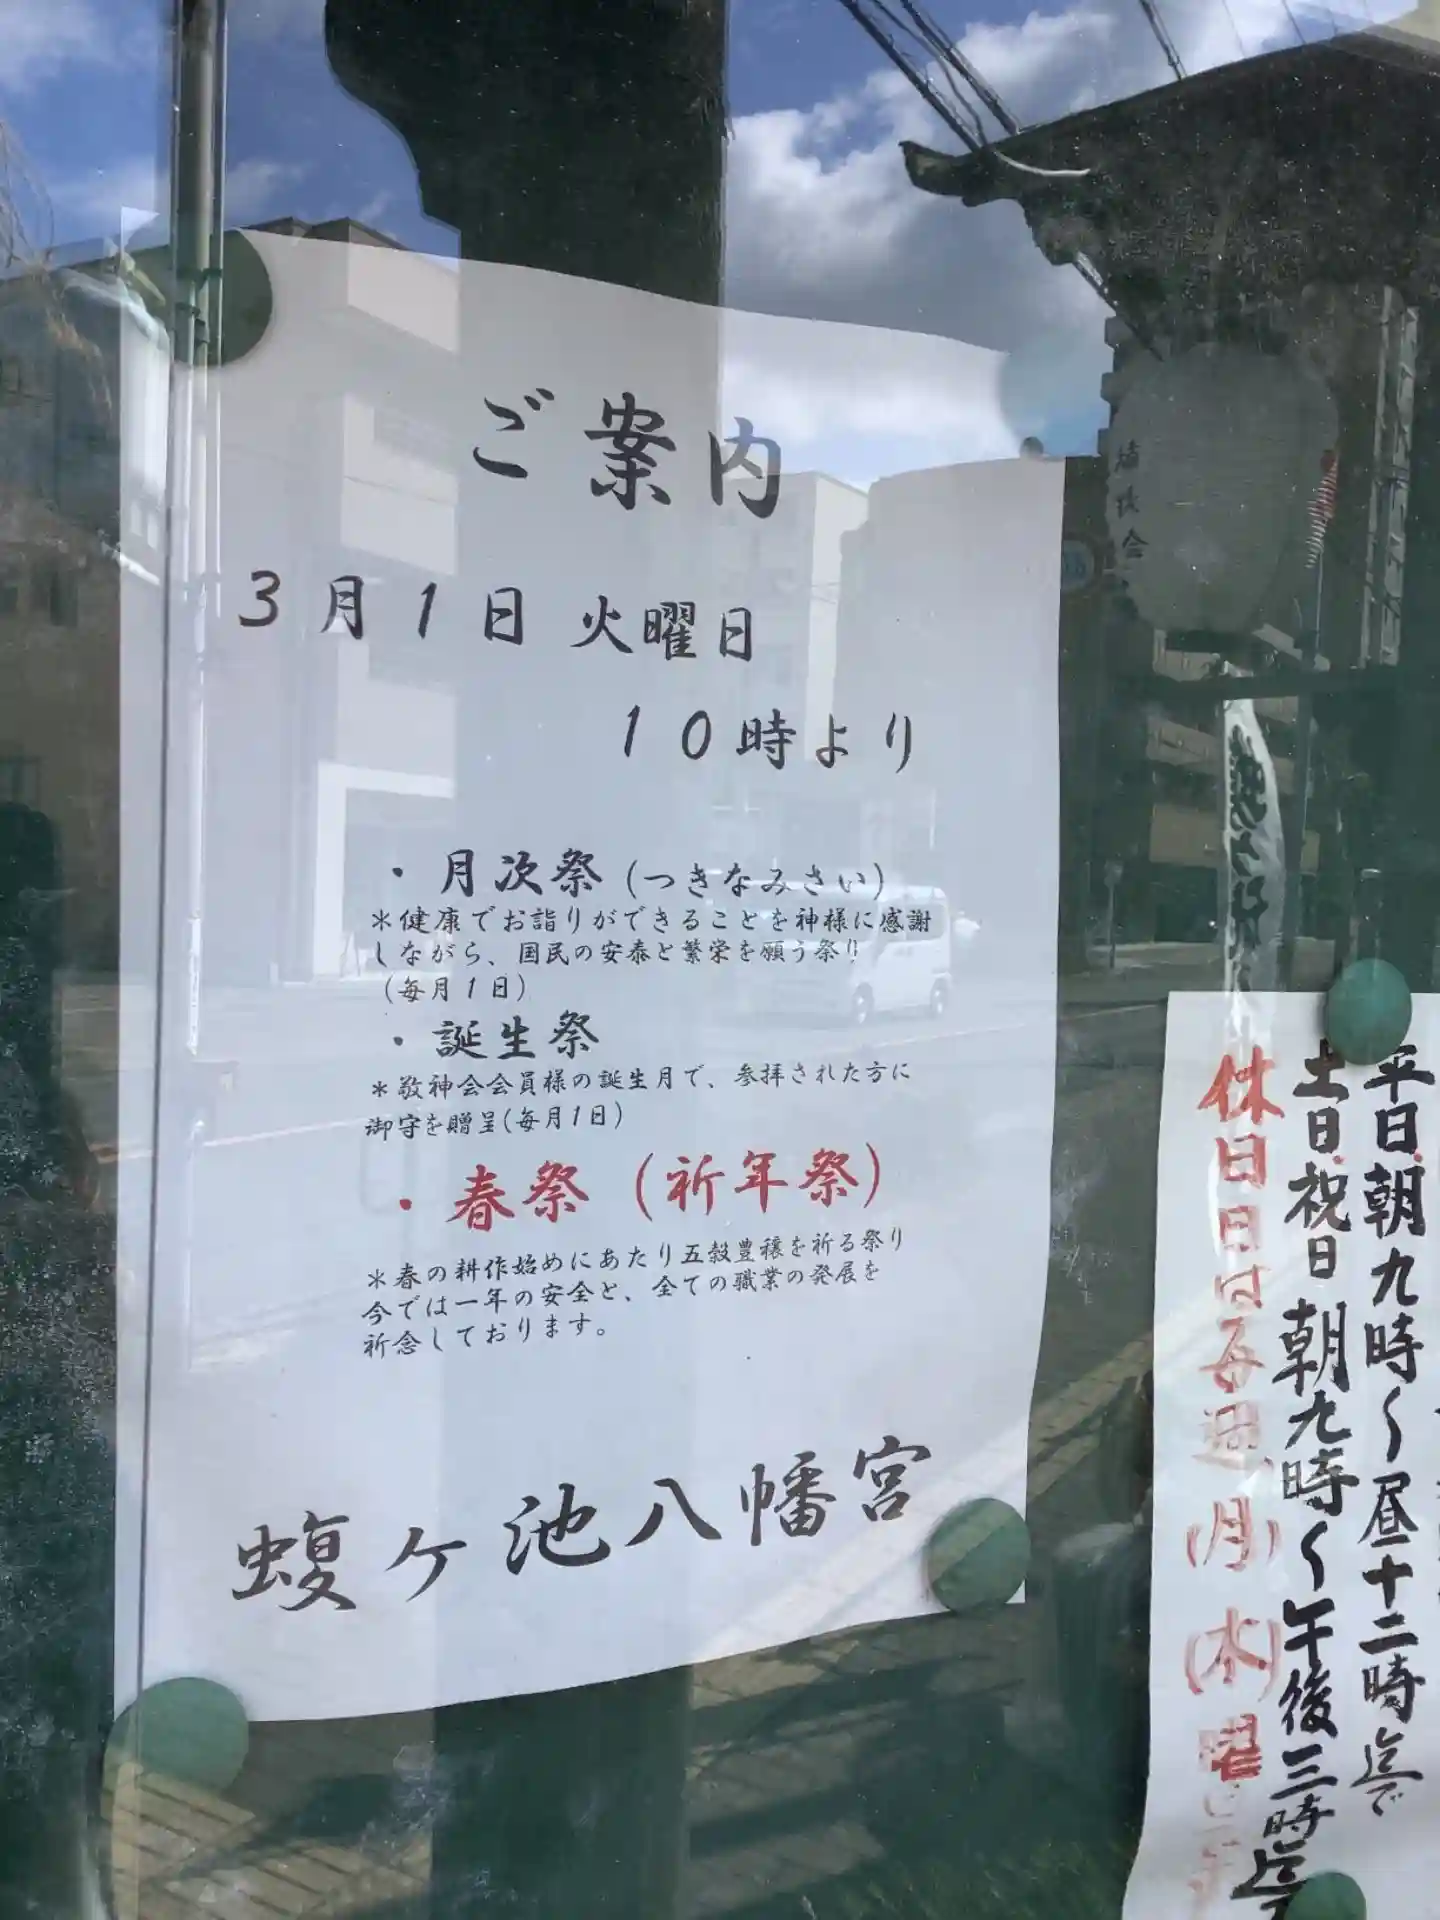 ご案内
3月1日 火曜日
10時より
・月次祭(つきなみさい)
*健康でお詣りができることを神様に感謝
しながら、国民の安泰と繁栄を願う祭り
(毎月1日)
・誕生祭
*敬神会会員様の誕生月で、参拝された方に
御守を贈呈(毎月1日)
・春祭(祈年祭)
*春の耕作始めにあたり五穀豊穣を祈る祭り
今では一年の安全と、全ての職業の発展を
祈念しております。
蝮ヶ池八幡宮
平日朝九時~昼十二時迄で
土日祝日朝九時~午後三時迄
休日日は毎週(月)(木)曜日